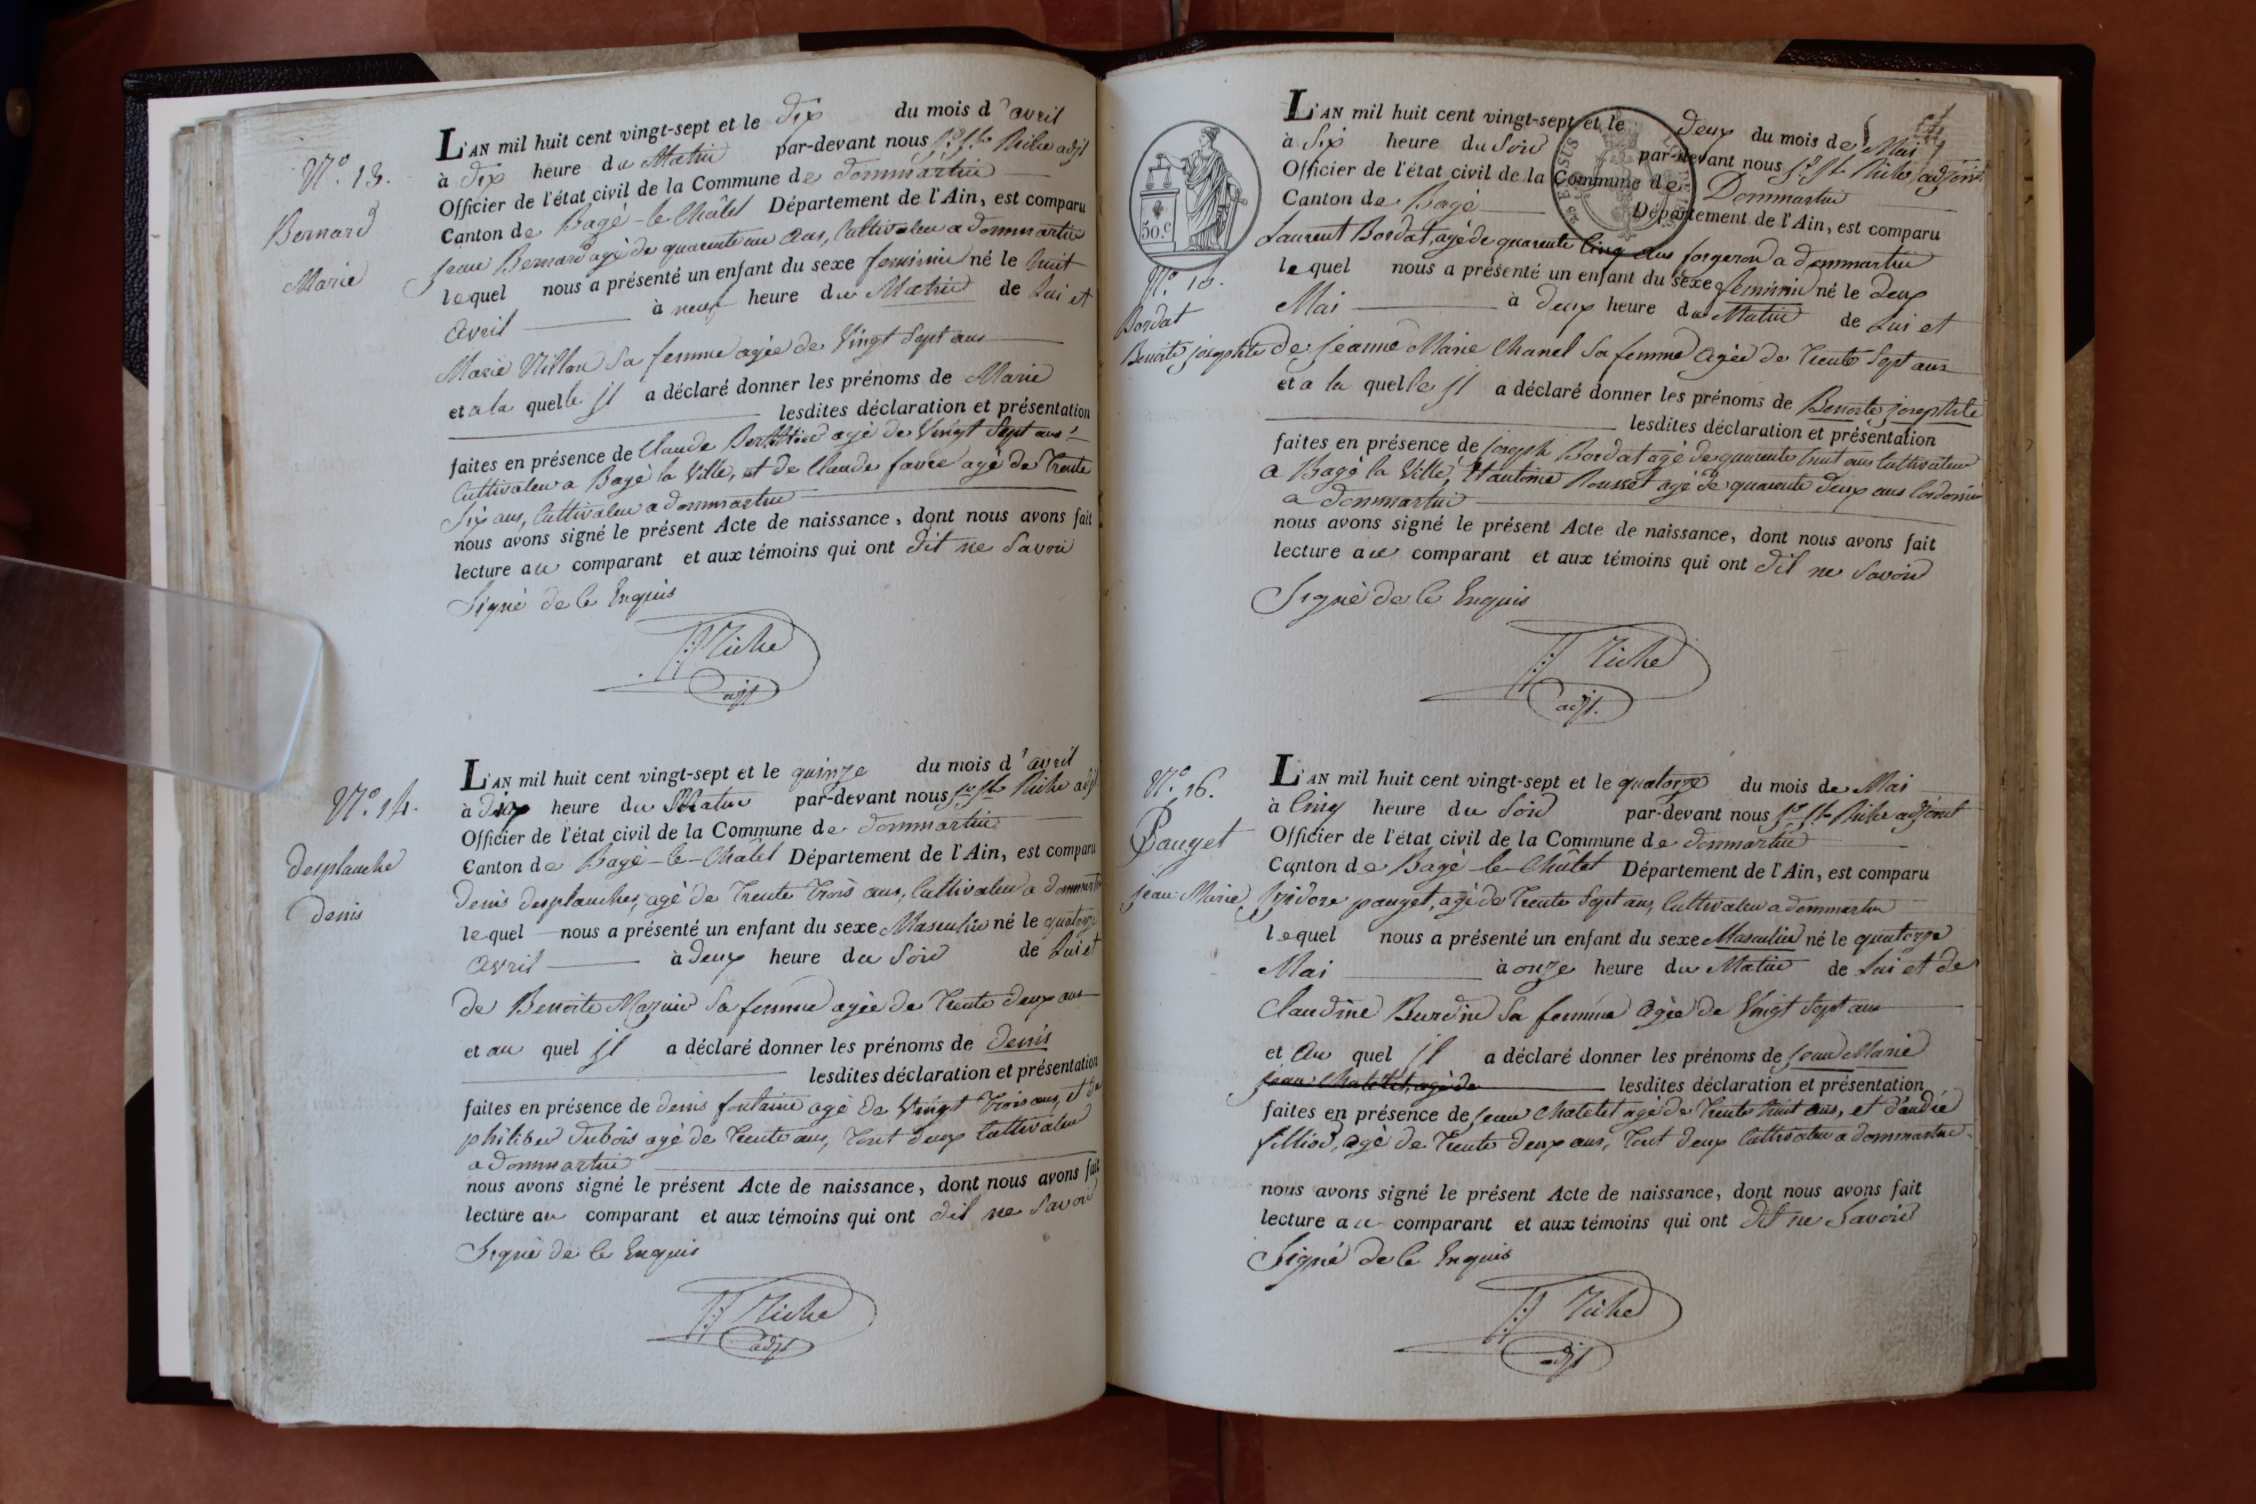 N.o 13.
Bernard
Marie
L'AN mil huit cent vingt-sept et le dix du mois d'avril
à dix heure du Matin par-devant nous Riche adjt
Officier de l'état civil de la Commune de dommartin
Canton de Bagé-le-Châtel Département de l'Ain, est comparu
jean Bernard agé de quarente un ans, Cultivateur a dommartin
lequel nous a présenté un enfant du sexe feminin né le huit
avril à neuf heure du Matin de Lui et
Marie Villon Sa femme agée de Vingt Sept ans
et a la quelle il a déclaré donner les prénoms de Marie
lesdites déclaration et présentation
faites en présence de Claude agé de Vingt Sept ans
Cultivateur a Bagé la Ville, et de Claude favre agé de Trente
Six ans, Cultivateur a dommartin
nous avons signé le présent Acte de naissance, dont nous avons fait
lecture au comparant et aux témoins qui ont dit ne Savoir
Signé de ce Enquis
Riche
adjt
N.o 14.
desplanche
denis
L'AN mil huit cent vingt-sept et le quinze du mois d'avril
à dix heure du Matin par-devant nous Riche adjt
Officier de l'état civil de la Commune de dommartin
Canton de Bagé-le-Chatel Département de l'Ain, est comparu
denis desplanches, agé de Trente Trois ans, Cultivateur a dommartin
lequel nous a présenté un enfant du sexe Masculin né le quatorze
avril à deux heure du Soir de Lui et
de Benoite Mazuir Sa femme agée de Trente deux ans
et au quel il a déclaré donner les prénoms de denis
lesdites déclaration et présentation
faites en présence de denis fontaine agé de Vingt Trois ans, et de
philiber dubois agé de Trente ans, Tout deux Cultivateur
a dommartin
nous avons signé le présent Acte de naissance, dont nous avons fait
lecture au comparant et aux témoins qui ont dit ne Savoir
Signé de ce Enquis
Riche
adjt
50.c
L'AN mil huit cent vingt-sept et le deux du mois de Mai
à Six heure du Soir par-devant nous Riche adjoint
Officier de l'état civil de la Commune de Dommartin
Canton de Bagé Département de l'Ain, est comparu
Laurent Bordat, agé de quarente Cinq ans forgeron a dommartin
lequel nous a présenté un enfant du sexe feminin né le deux
Mai à deux heure du Matin de Lui et
Bordat
Benoite josephte
de jeanne Marie Chanel Sa femme agée de Trente Sept ans
et a la quelle il a déclaré donner les prénoms de Benoite josephte
lesdites déclaration et présentation
faites en présence de joseph Bordat agé de quarente huit ans Cultivateur
a Bagé la Ville, Rousset agé de quarente deux ans Cordonnier
a dommartin
nous avons signé le présent Acte de naissance, dont nous avons fait
lecture au comparant et aux témoins qui ont dit ne Savoir
Signé de ce Enquis
Riche
adjt.
N.o 16.
Pauget
jean Marie
L'AN mil huit cent vingt-sept et le quatorze du mois de Mai
à Cinq heure du Soir par-devant nous Riche adjoint
Officier de l'état civil de la Commune de dommartin
Canton de Bagé-le-Châtel Département de l'Ain, est comparu
pauget, agé de Trente Sept ans, Cultivateur a dommartin
lequel nous a présenté un enfant du sexe Masculin né le quatorze
Mai à onze heure du Matin de Lui et de
Claudine Burdin Sa femme agée de Vingt Sept ans
et au quel il a déclaré donner les prénoms de jean Marie
jean Chatelet, agé de lesdites déclaration et présentation
faites en présence de jean Chatelet agé de Trente huit ans, et
fillion, agé de Trente deux ans, Tout deux Cultivateur a dommartin
nous avons signé le présent Acte de naissance, dont nous avons fait
lecture au comparant et aux témoins qui ont dit ne Savoir
Signé de ce Enquis
Riche
adjt